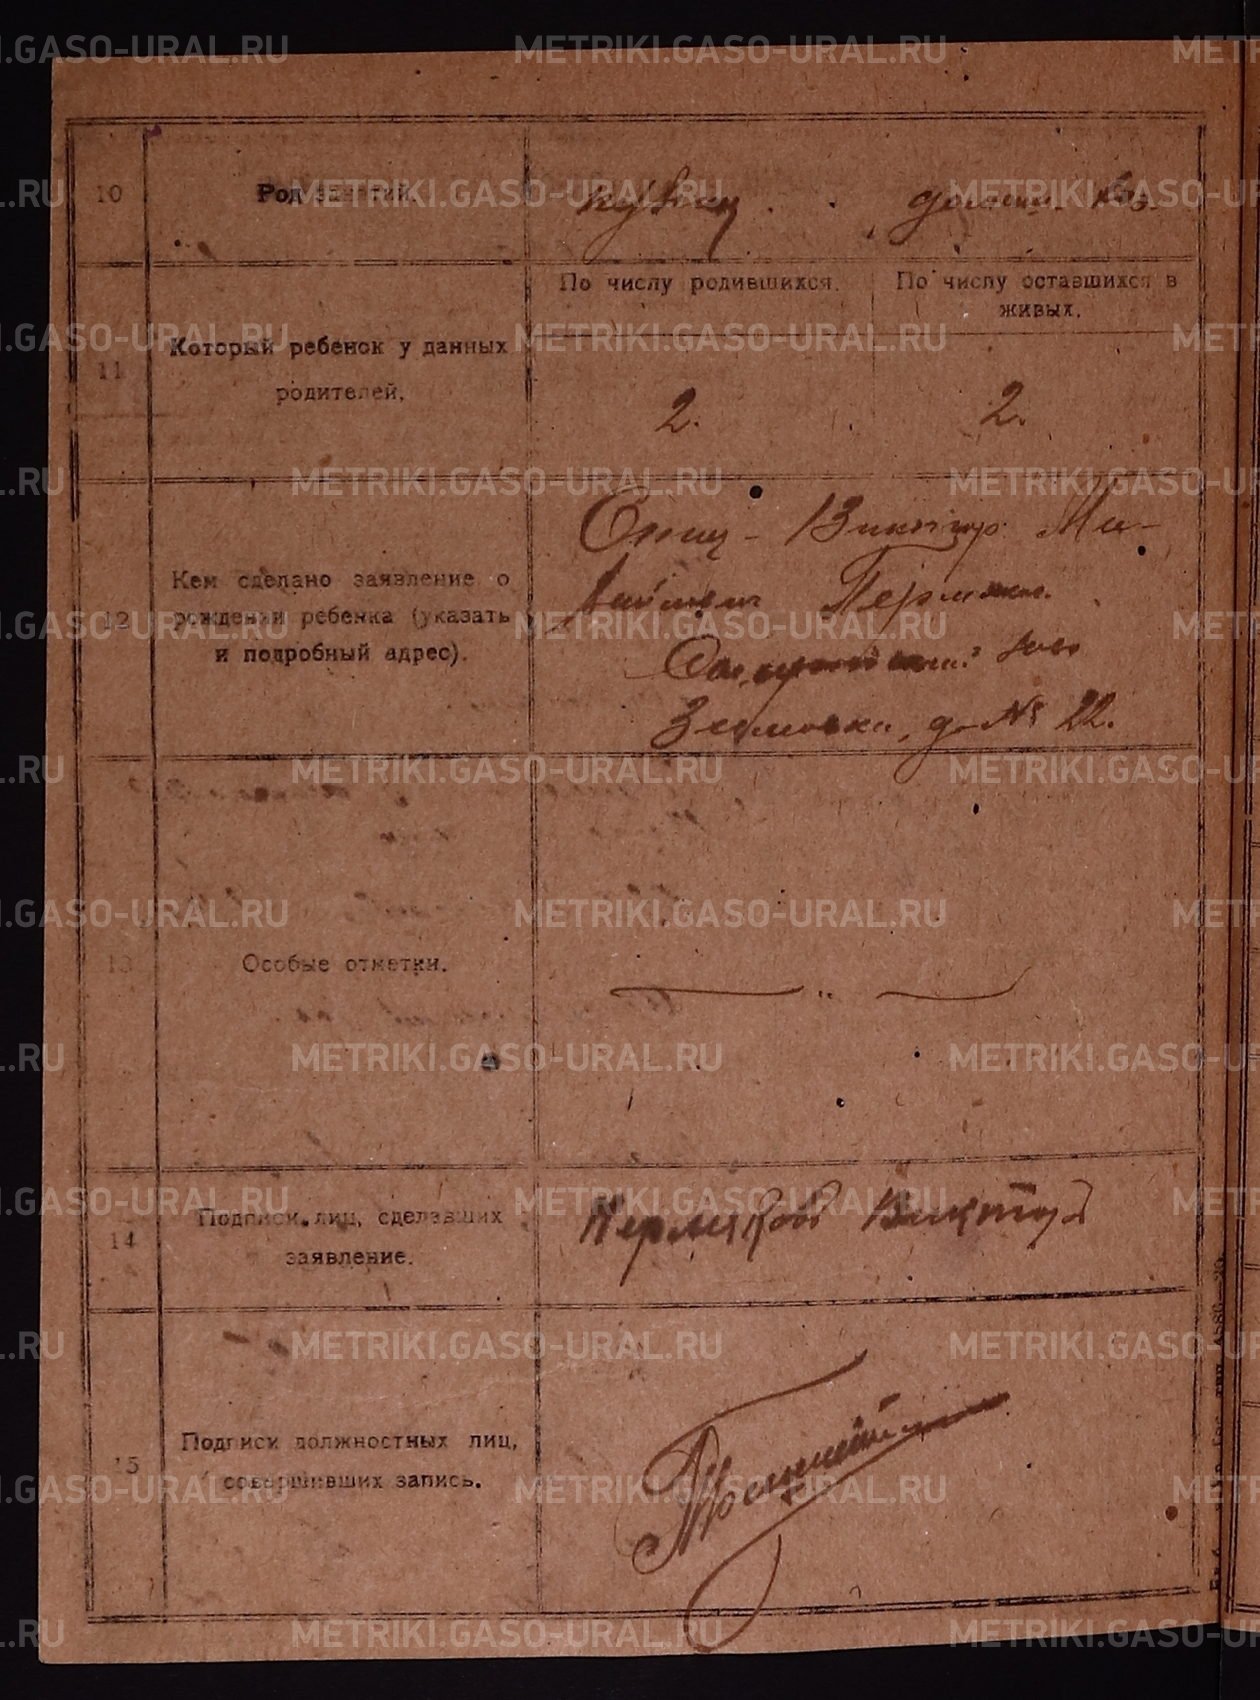 10
Род занятий.
11
По числу родившихся.
По числу оставшихся в
живых.
Который ребенок у данных
родителей.
2.
2.
12
Кем сделано заявление о
рождении ребенка (указать
и подробный адрес).
Отец - Виктор Ми-
Пермяков.
д. № 22.
13
Особые отметки.
14
Подписи лиц, сделавших
заявление.
Пермяковъ Викторъ
15
Подписи должностных лиц,
совершивших запись.
METRIKI.GASO-URAL.RU